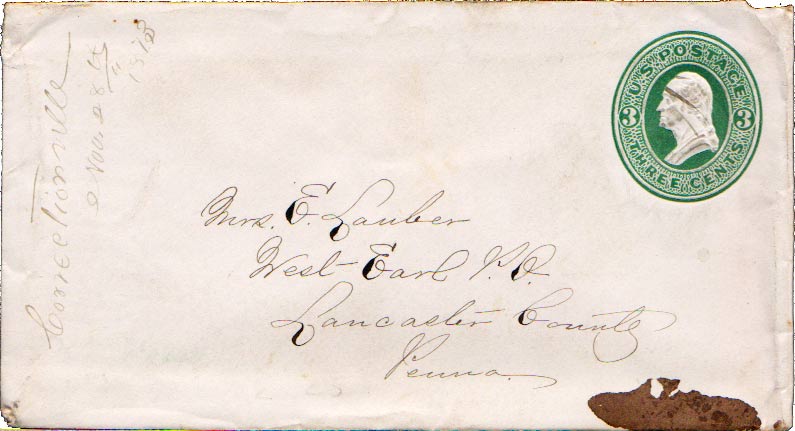 Connectionville
Nov. 28 th
U.S. POSTAGE
3 3
THREE CENTS
Mrs. E. Lauber
West Earl P.O.
Lancaster County
Penna.